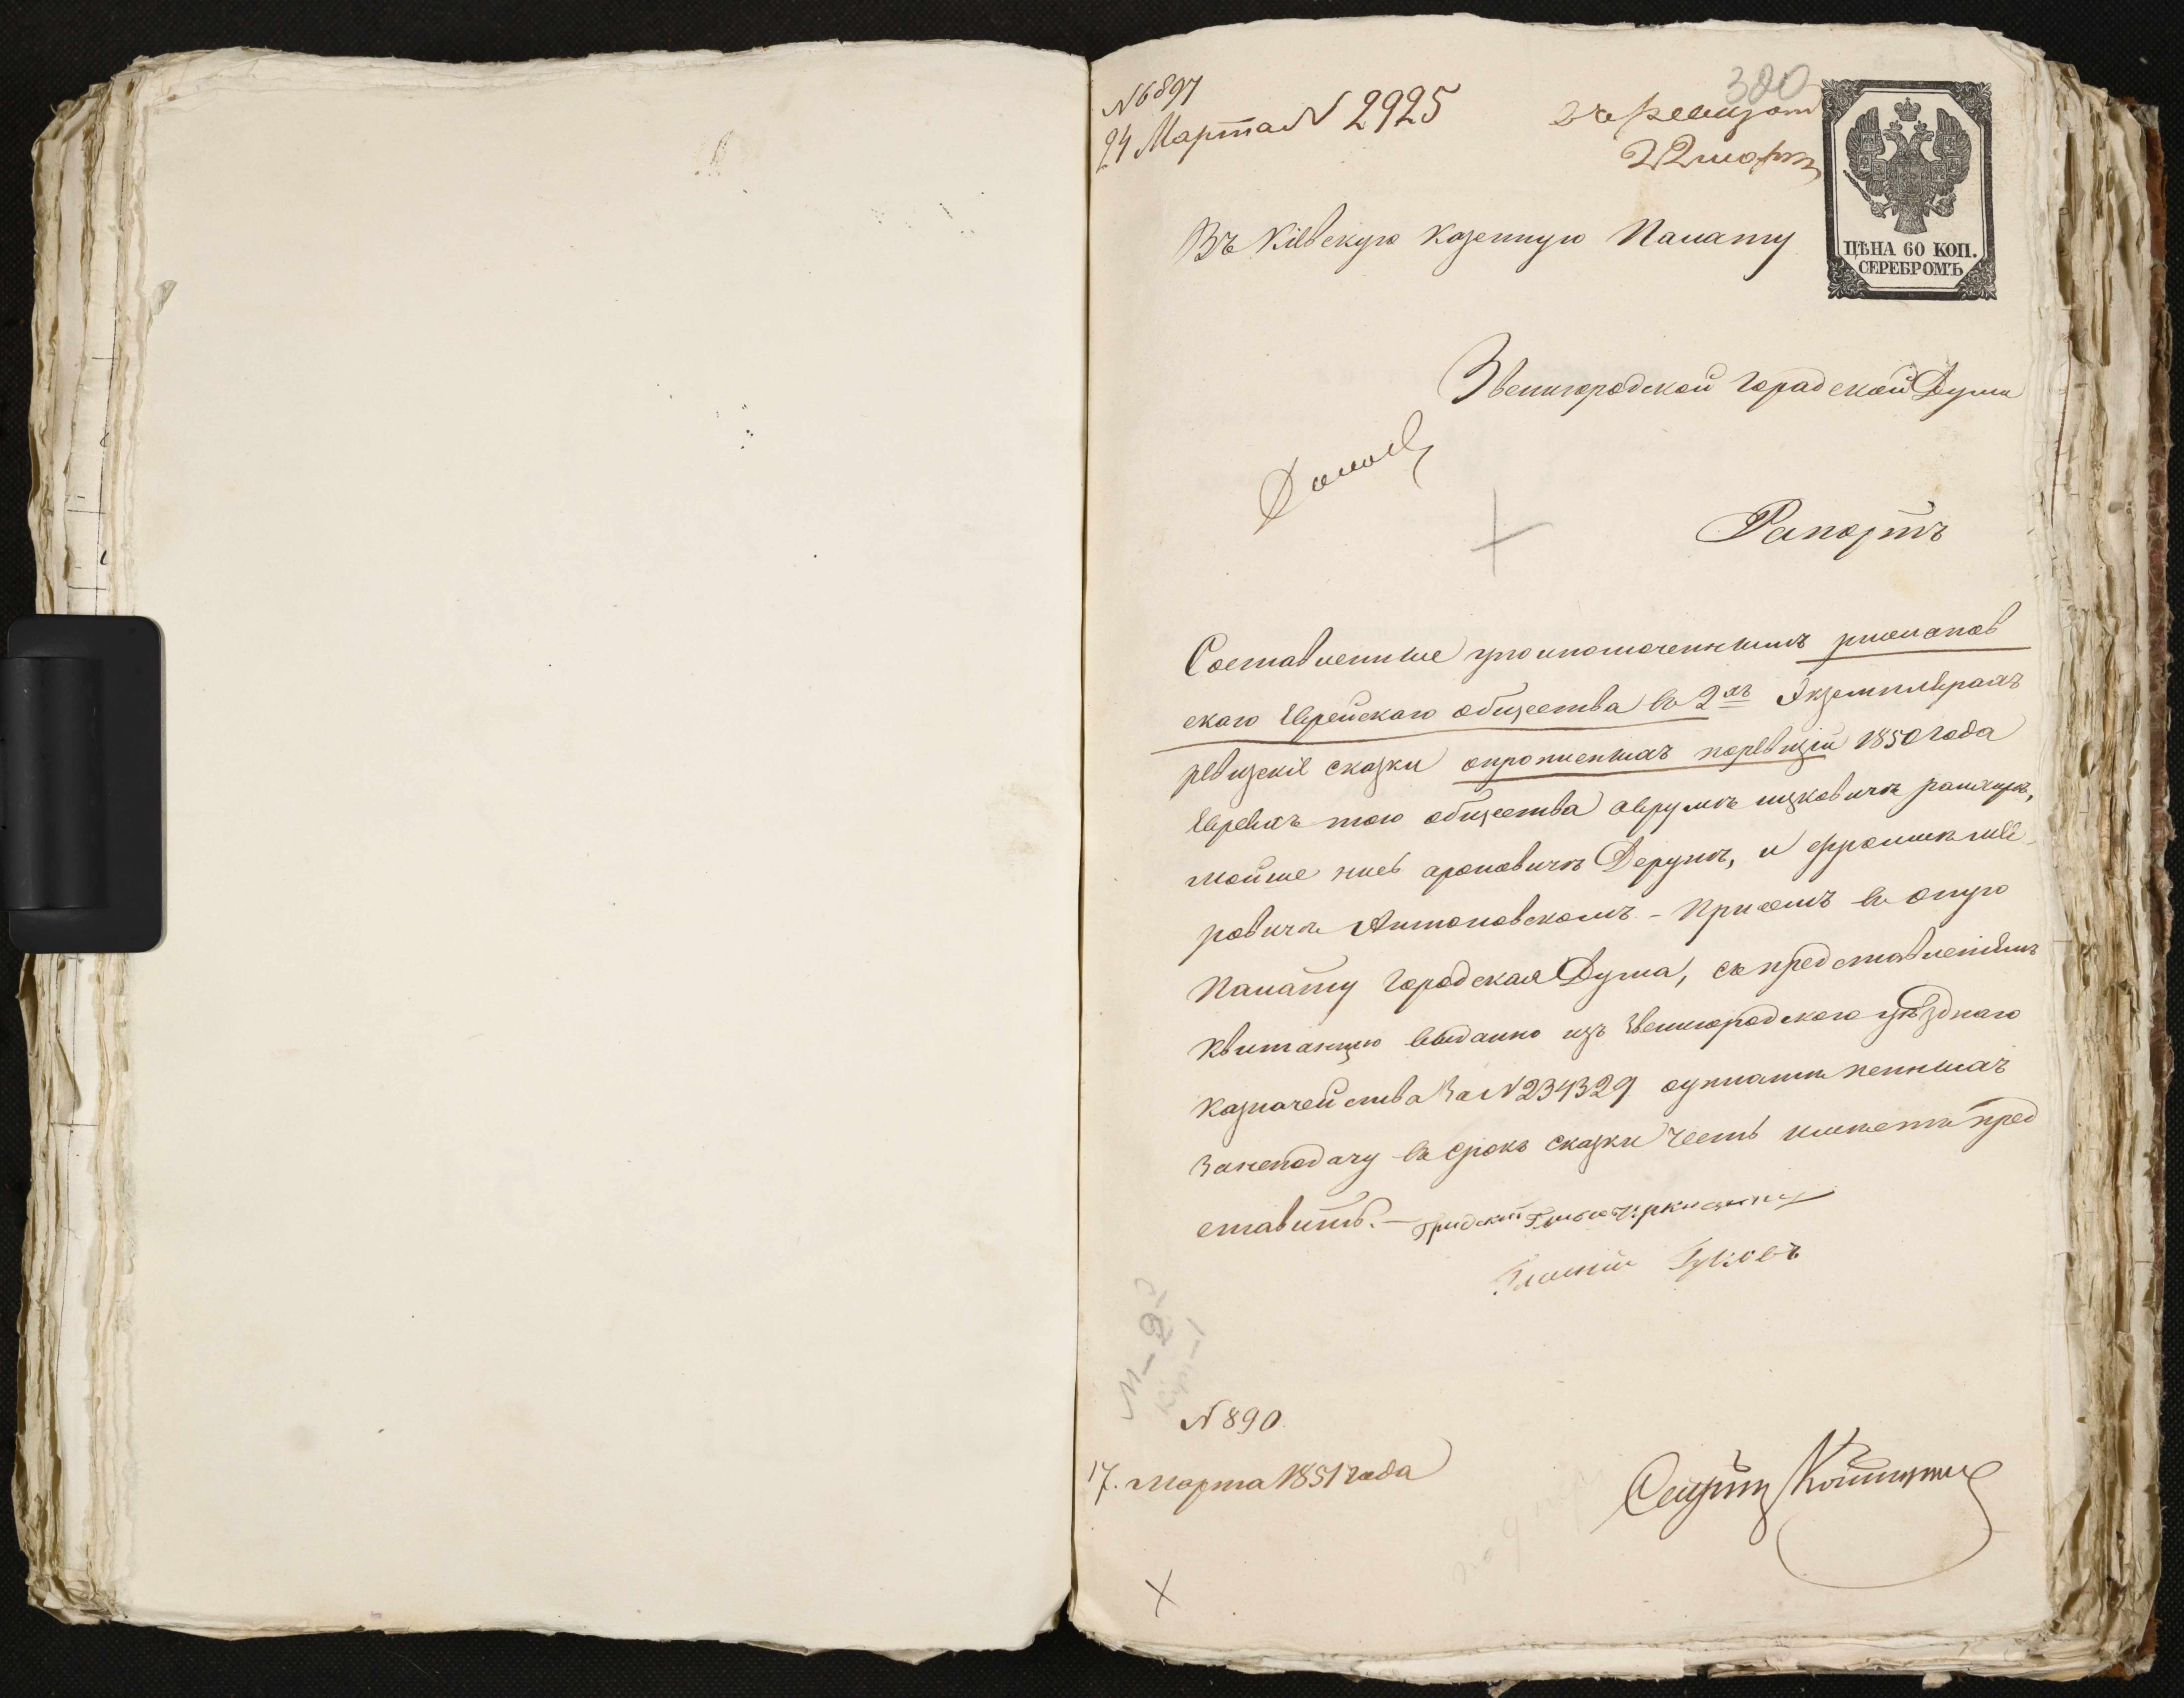 380
N 6897
24 Марта N 2925
22 марта
ЦѢНА 60 КОП.
СЕРЕБРОМЪ
Въ Кіевскую Казенную Палату
Звенигородской Городской Думы
Рапортъ
Составленные уполномоченнымъ
скаго Еврейскаго общества въ 2хъ Экземплярахъ
ревизскіе сказки опрописныхъ поревизіи 1850 года
Евреяхъ того общества Аврумъ Ицковичъ
Мойше Ароновичъ Дерунъ, и Фроимъ Лей
ровичъ Антоновскомъ - При семъ въ оную
Палату Городская Дума, съ представленіемъ
Квитанцію выданно изъ Звенигородского уѣзднаго
Казначейства За N 234329 оуплатѣ пенныхъ
Занеподачу въ срокъ сказки честь имѣетъ пред
ставить. —
Гласный Гуковъ
N 890
17. марта 1851 года